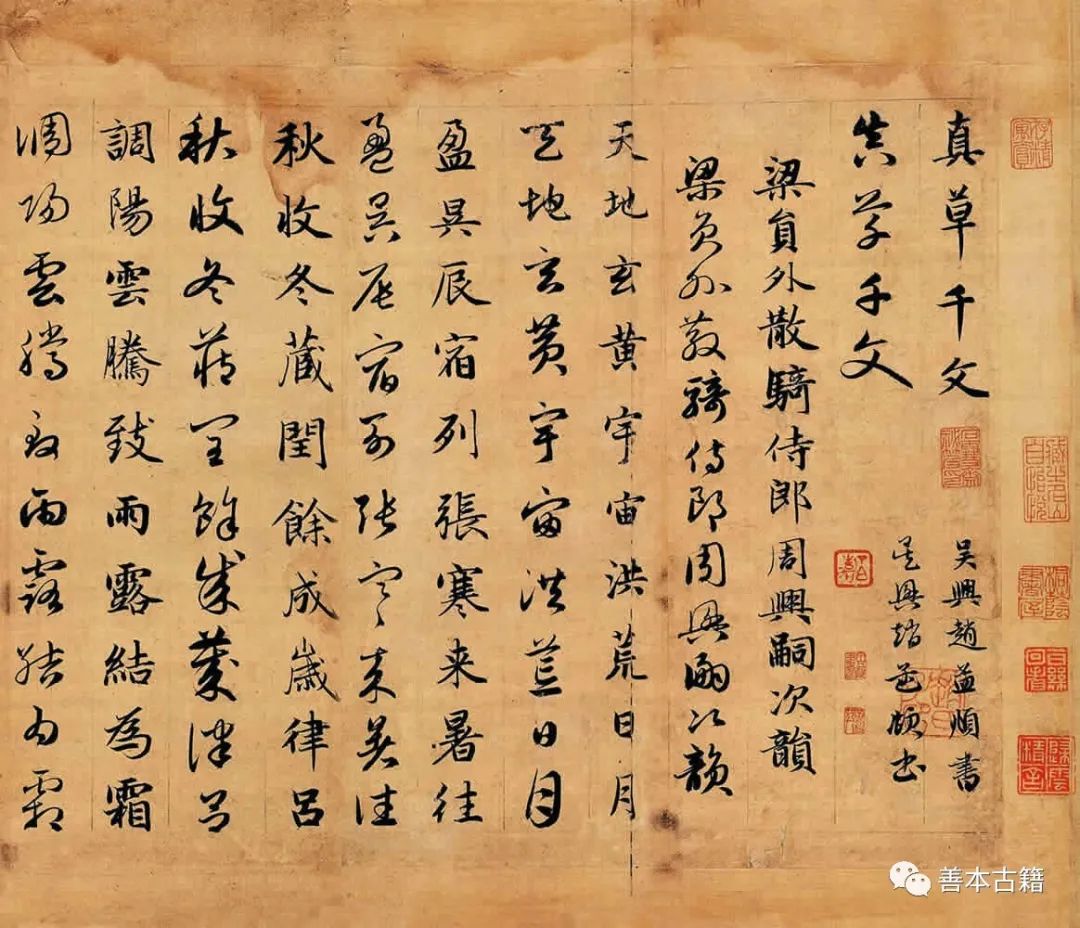 真草千文
真草千文
吳興趙孟頫書
吳興趙孟頫書
梁員外散騎侍郎周興嗣次韻
梁員外散騎侍郎周興嗣次韻
天地玄黄宇宙洪荒日月
天地玄黄宇宙洪荒日月
盈昃辰宿列張寒来暑往
盈昃辰宿列張寒来暑往
秋收冬藏閏餘成歲律呂
秋收冬藏閏餘成歲律呂
調陽雲騰致雨露結為霜
調陽雲騰致雨露結為霜
善本古籍